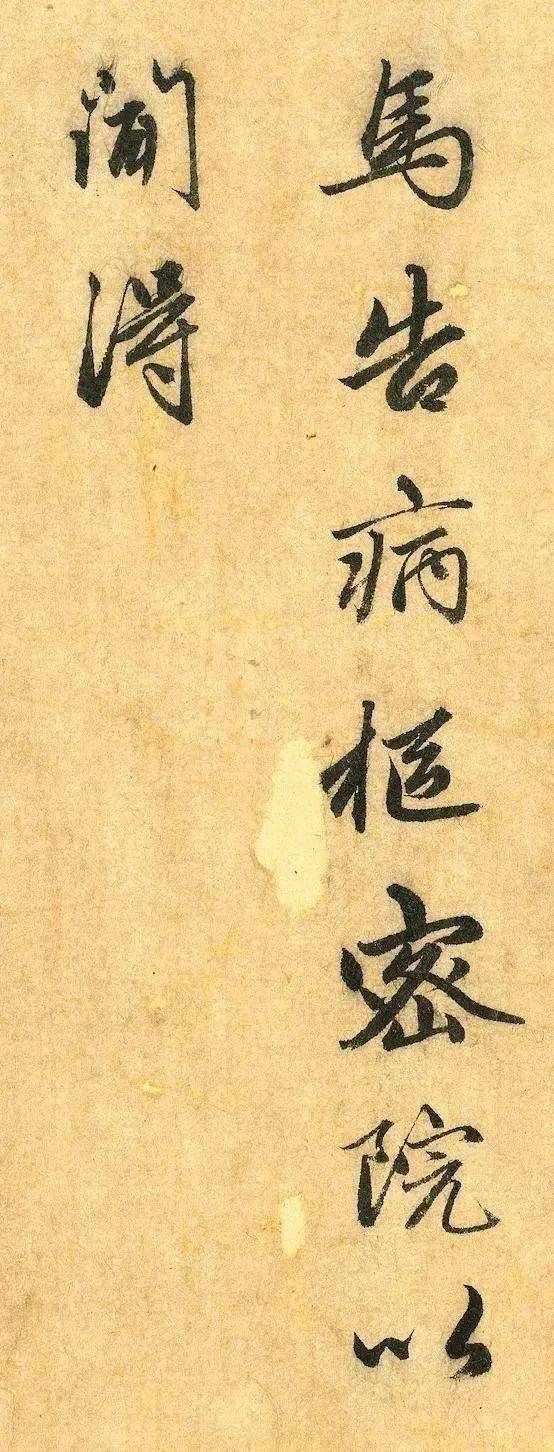 馬告病樞密院以
聞得